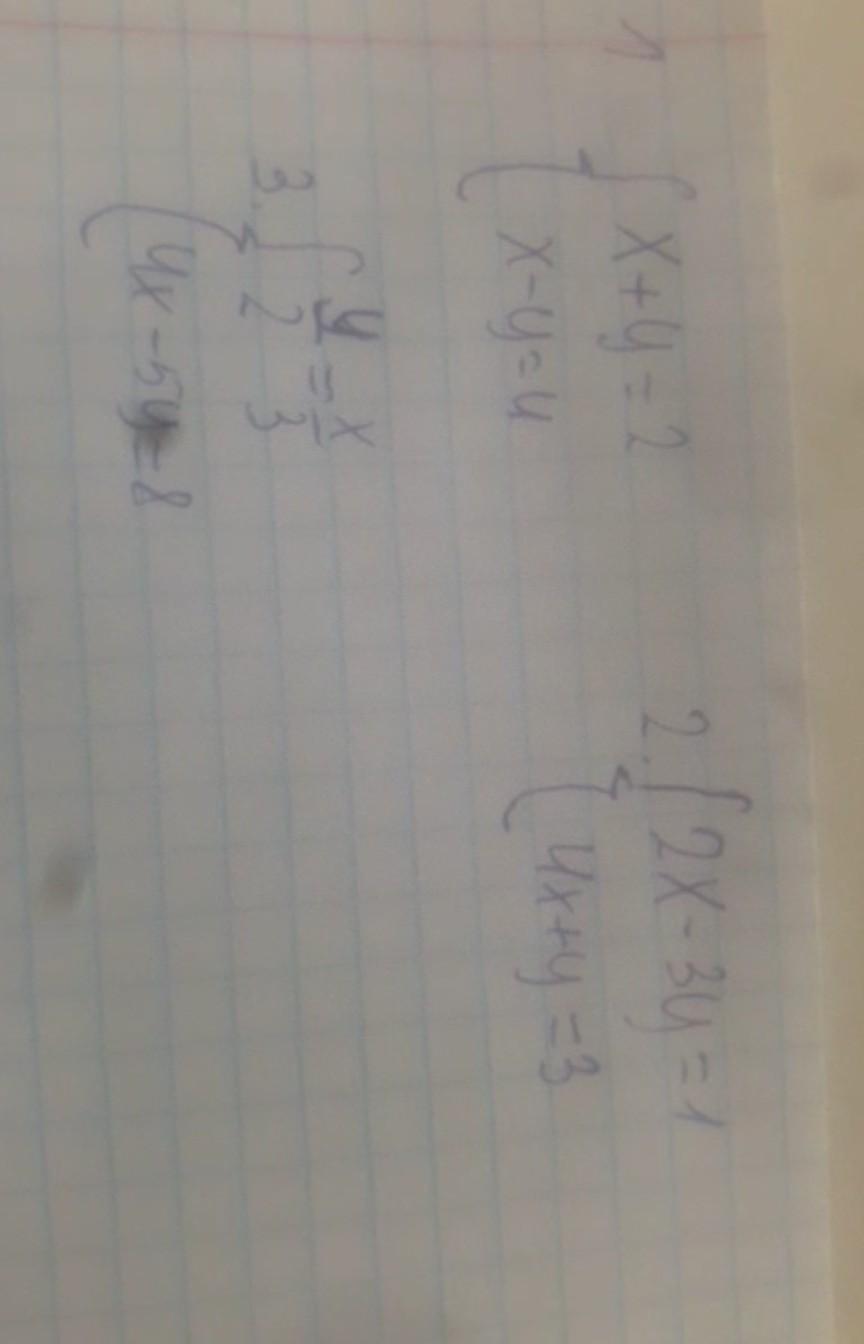 1 { x+y=2
x-y=4
2. { 2x-3y=1
4x+y=3
3. { y/2 = x/3
4x-5y=8